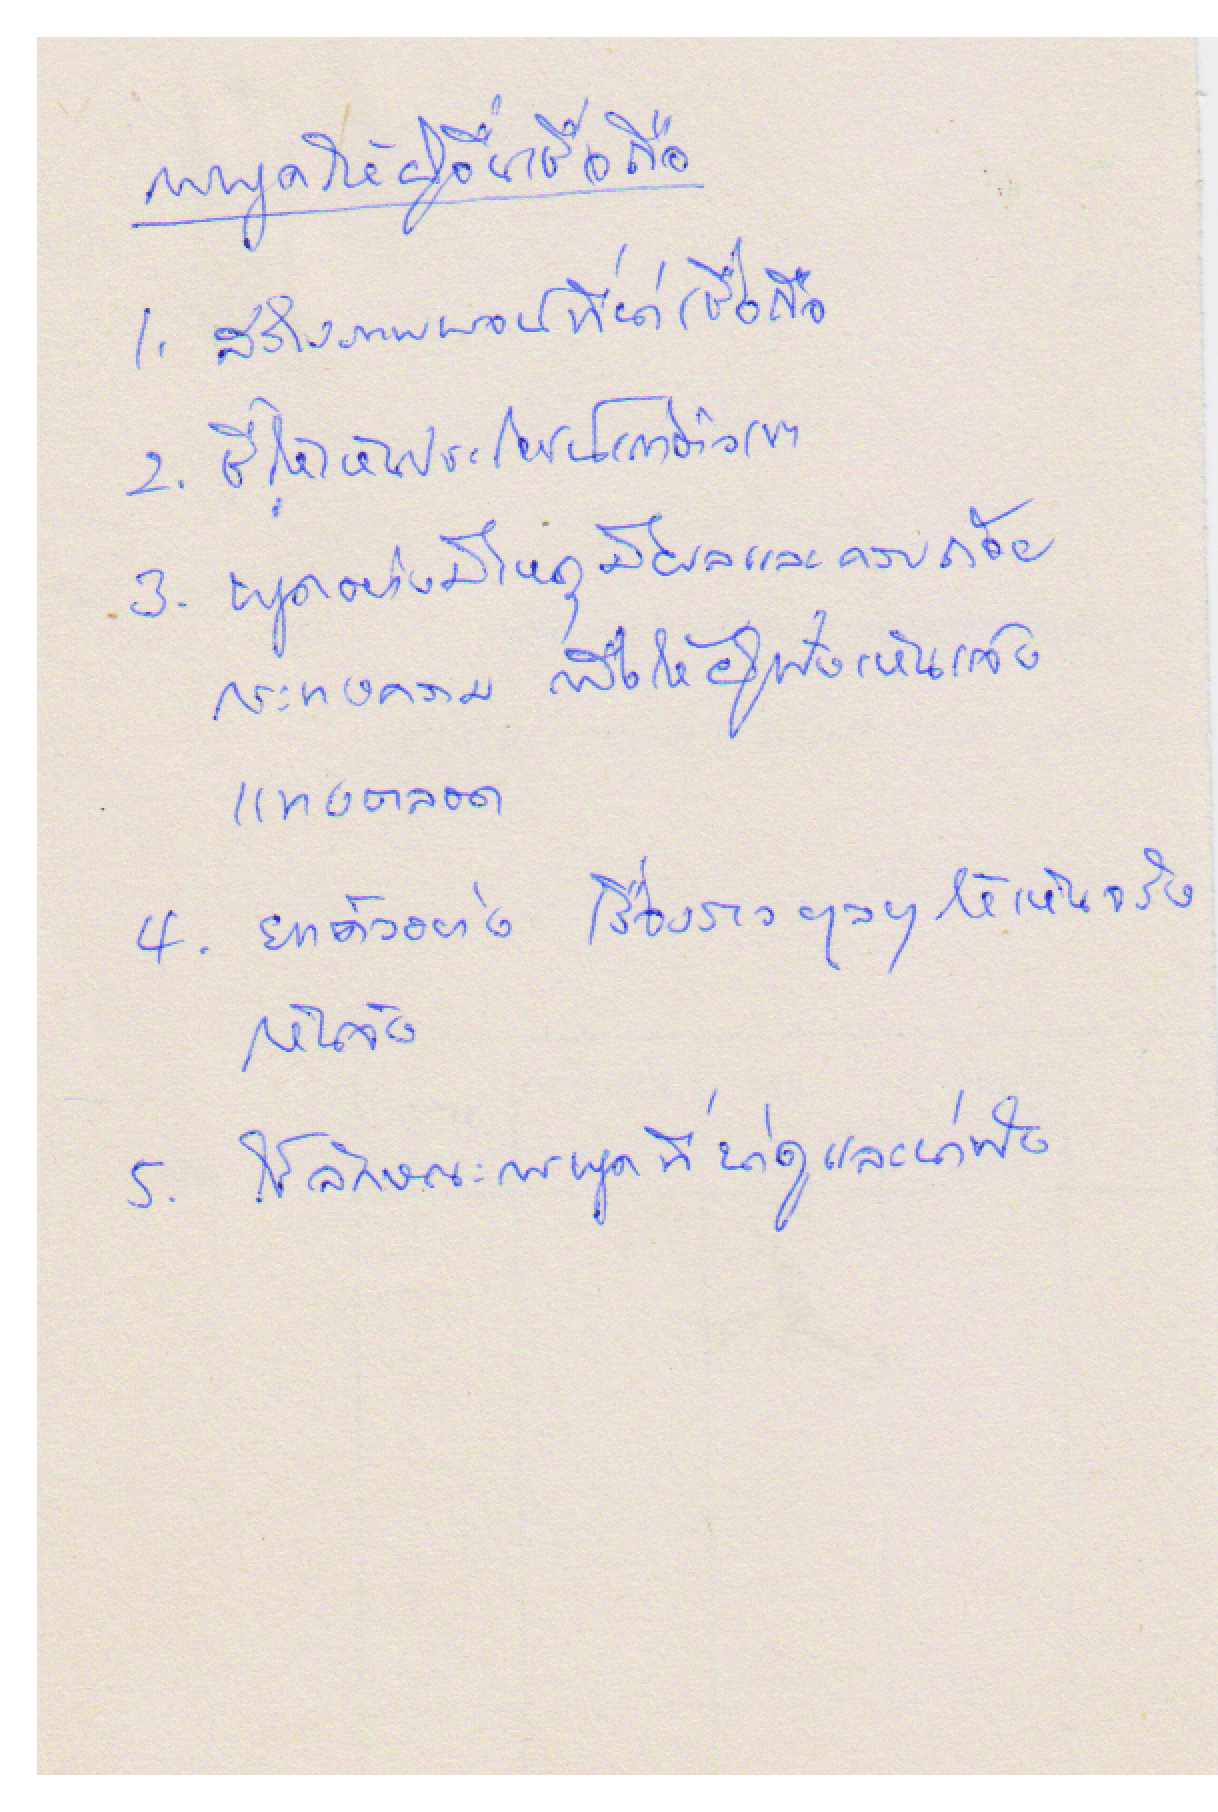 การพูดให้ผู้อื่นเชื่อถือ
1. สร้างภาพพจน์ที่น่าเชื่อถือ
2. ชี้ให้เห็นประโยชน์แก่ตัวเขา
3. พูดอย่างมีเหตุมีผลและครบถ้อย
กระทงความ เพื่อให้ผู้ฟังเห็นแจ้ง
แทงตลอด
4. ยกตัวอย่าง เรื่องราว ๆลๆ ให้เห็นจริง
เห็นจัง
5. ใช้ลักษณะการพูดที่น่าดูและน่าฟัง